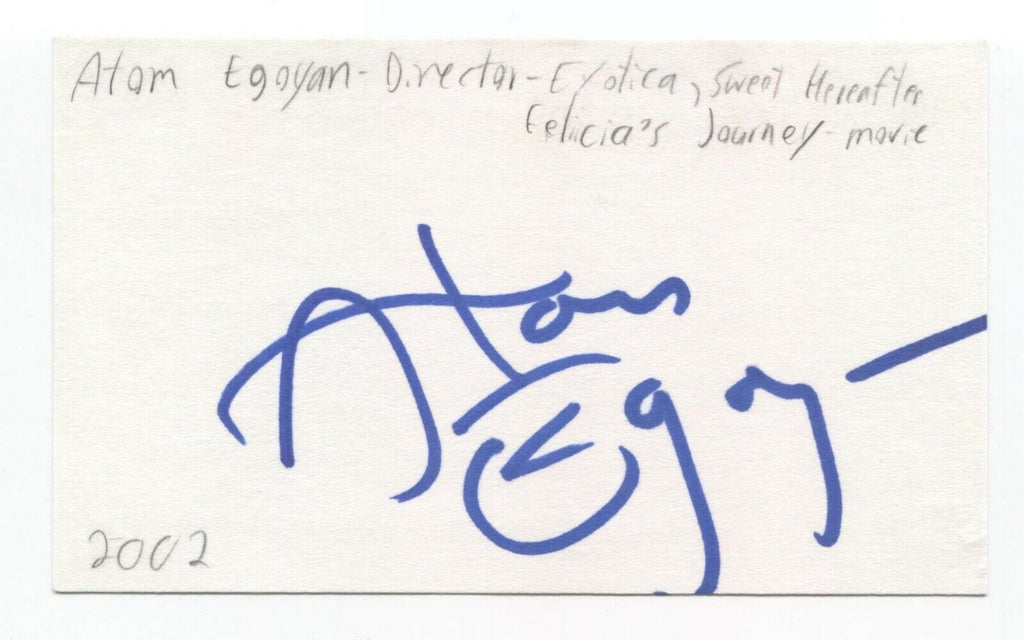 Atom Egoyan - Director - Exotica, Sweet Hereafter
Felicia's Journey - movie
Atom
Egoy
2002